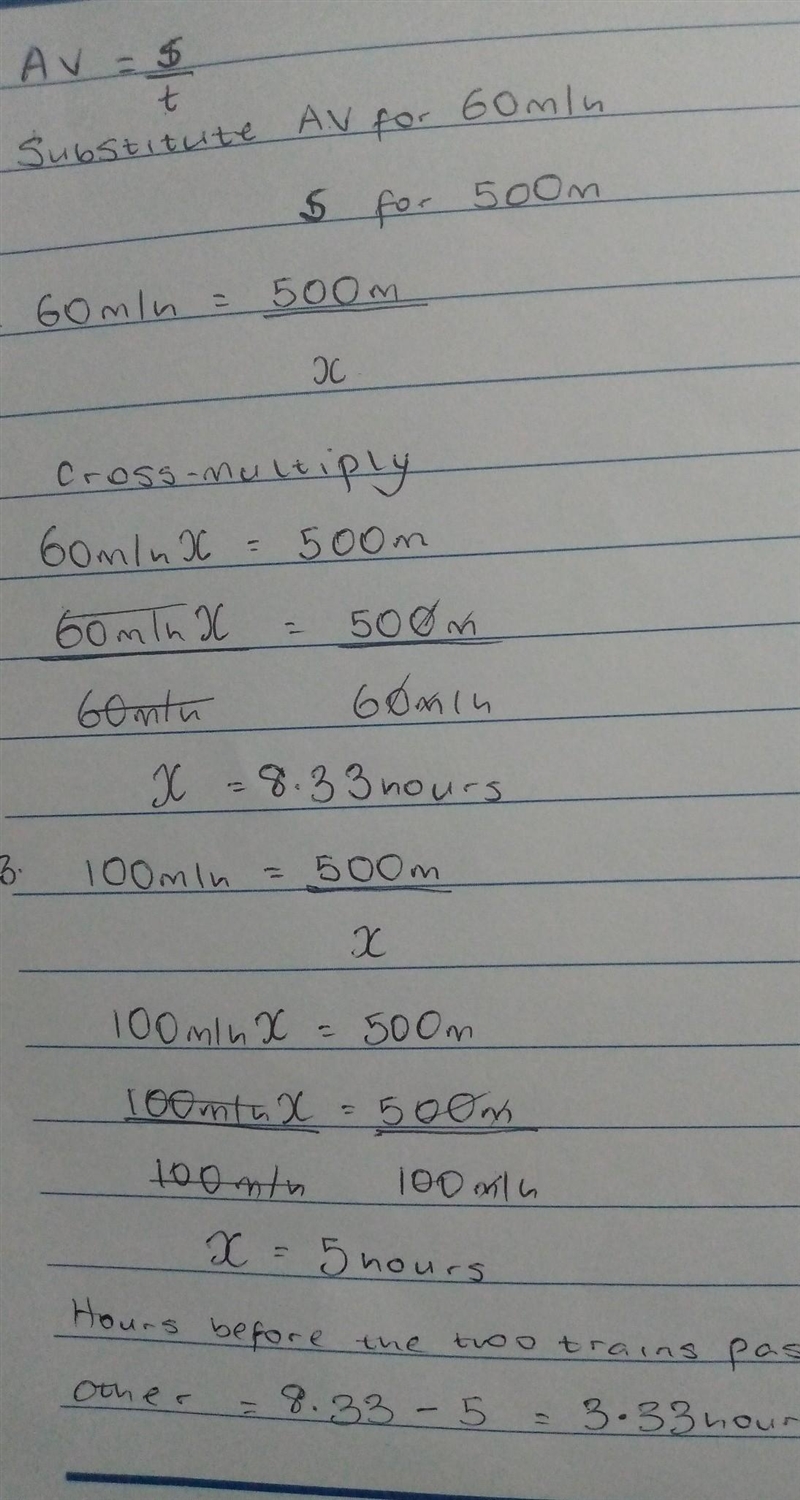 AV = $
t
Substitute AV for 60m/h
$ for 500m
60m/h = 500m
x
Cross-multiply
60m/hx = 500m
60m/hx = 500m
60m/h 60m/h
x = 8.33hours
3. 100m/h = 500m
x
100m/hx = 500m
100m/hx = 500m
100m/h 100m/h
x = 5hours
Hours before the two trains pas
other = 8.33 - 5 = 3.33hour